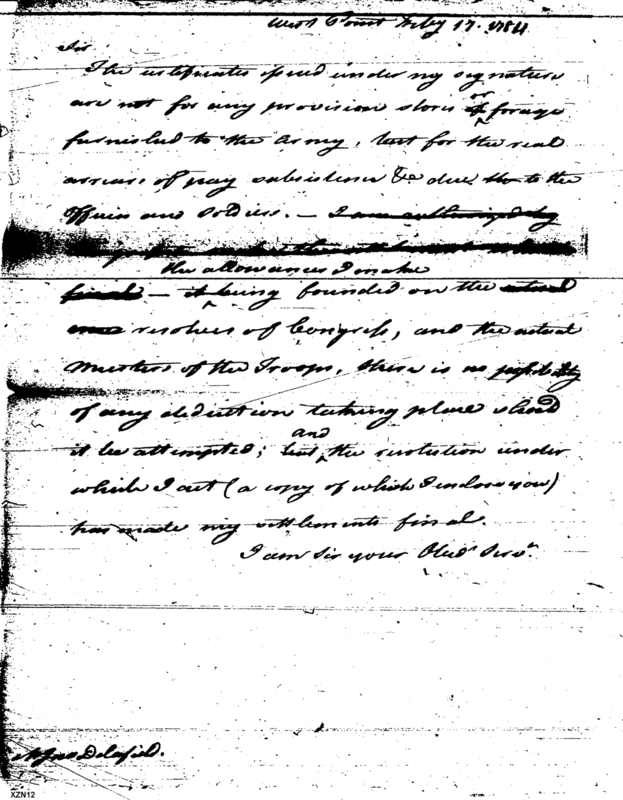 West Point Feby 17. 1784
Sir
The certificates issued under my signature
are not for any provision stores or forage
furnished to the Army, but for the real
arrears of pay subsistence &c due to the
Officers and Soldiers. — I am authorized by
the allowances I make
final — it being founded on the actual
resolves of Congress, and the actual
Musters of the Troops, there is no possibility
of any deduction taking place should
and
it be attempted; but the resolution under
which I act (a copy of which I enclose you)
has made my settlements final.
I am Sir your Obed. Serv.
Mr Jno Delafield.
XZN12